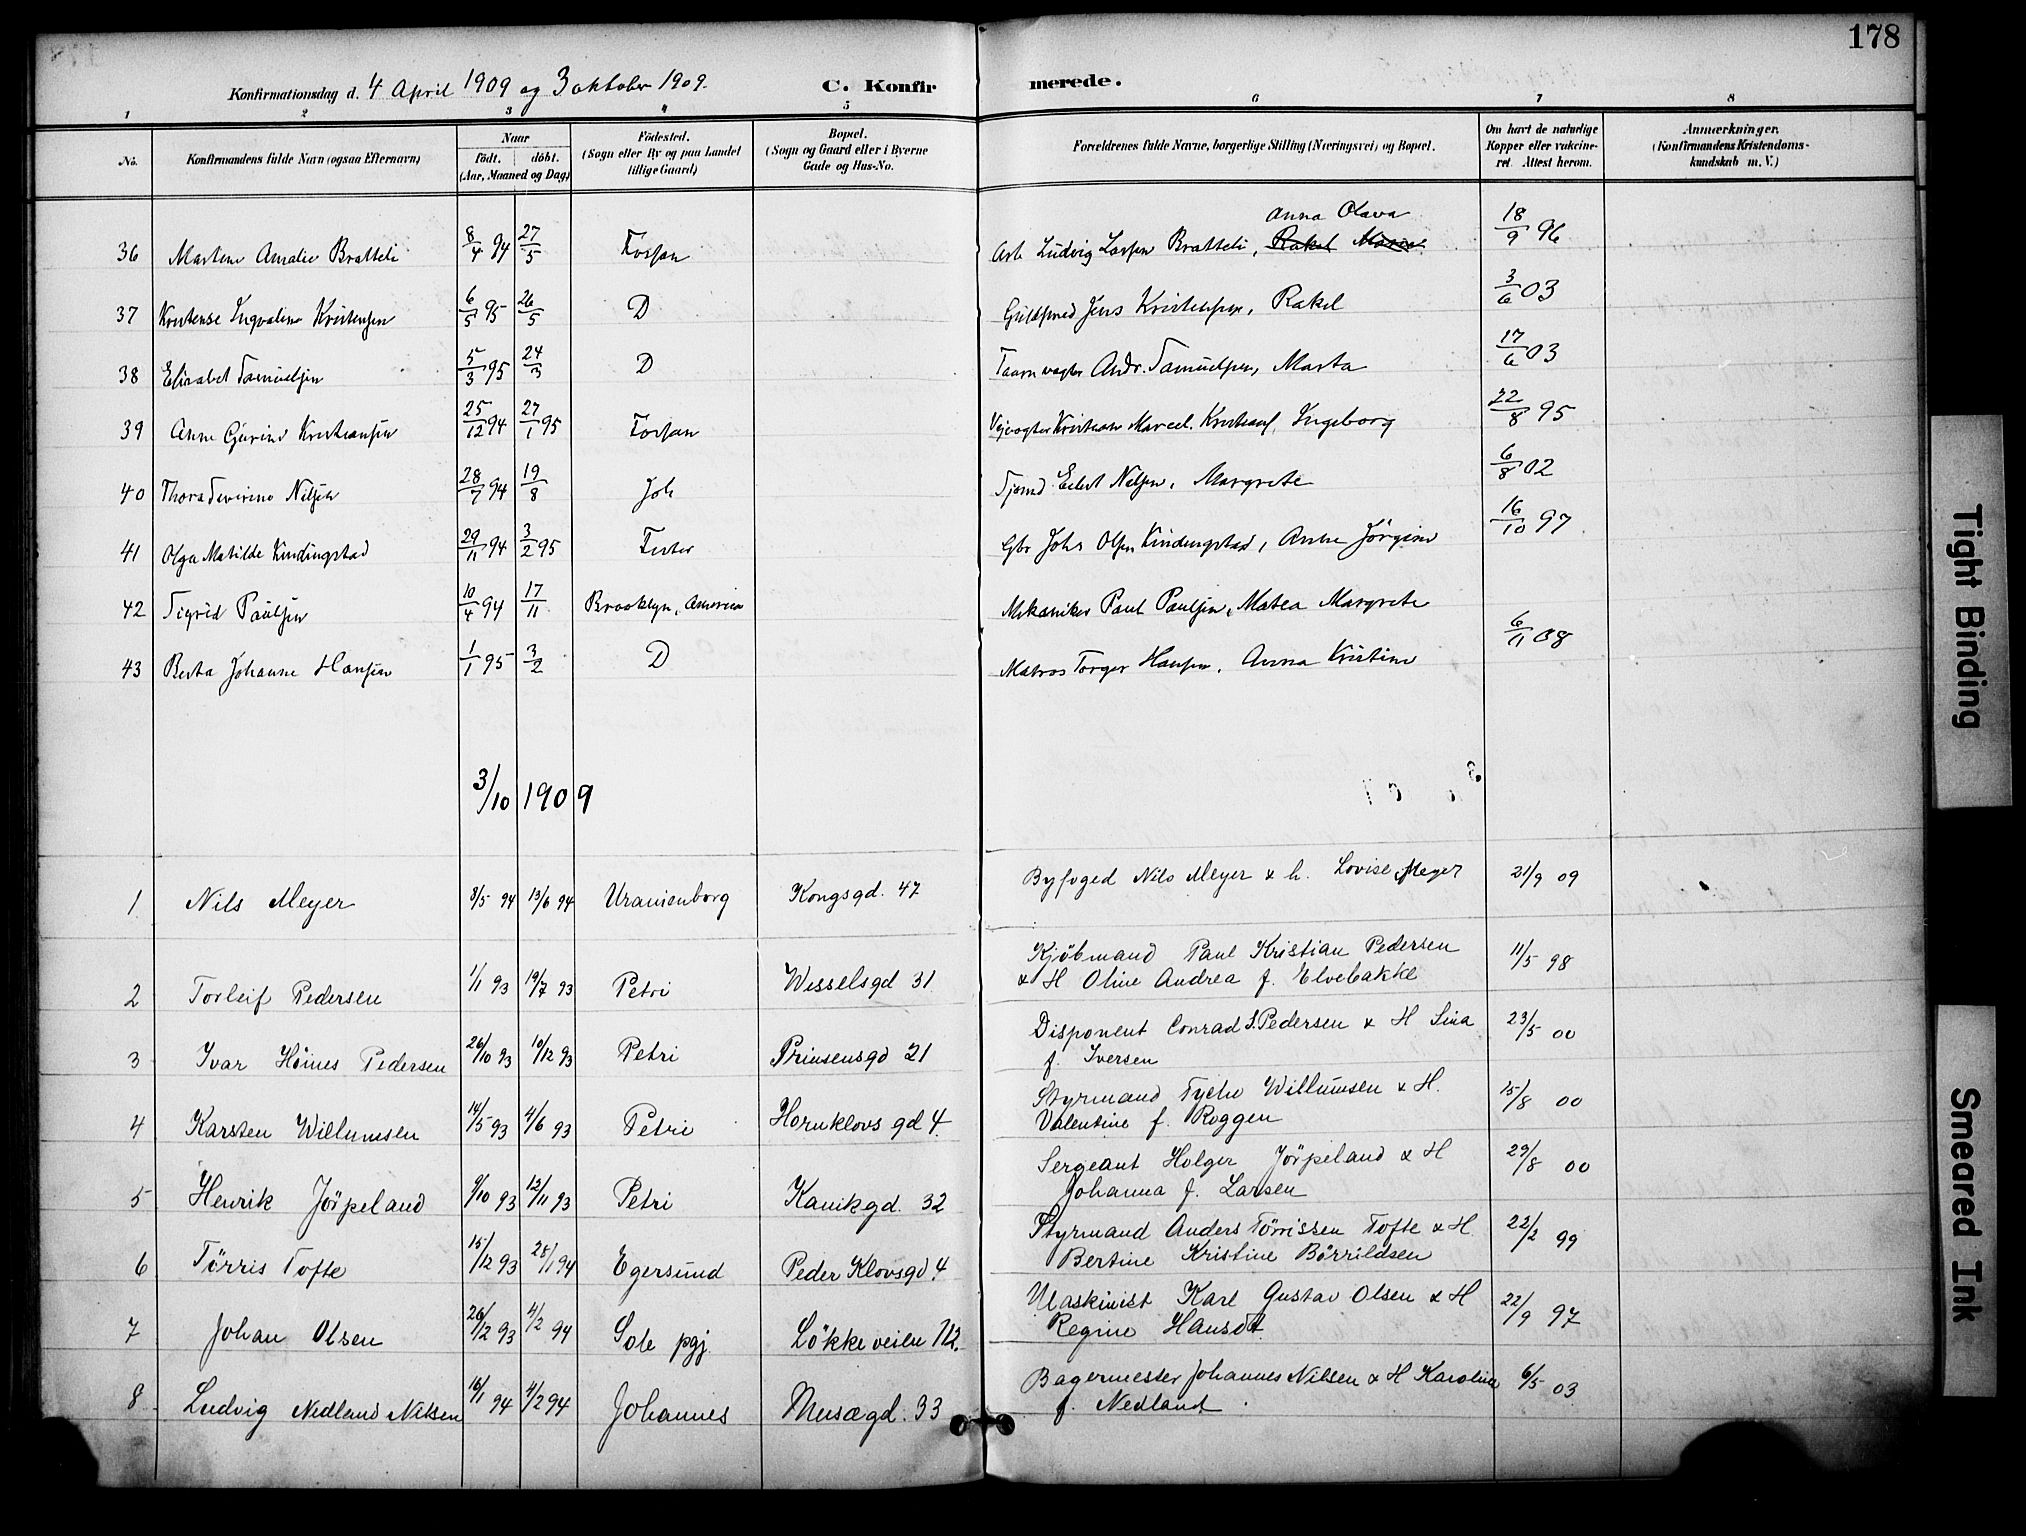 178
Konfirmationsdag d. 4 April 1909 og 3 oktober 1909. C. Konfir merede.
1 2 3 4 5 6 7 8
No. Konfirmandens fulde Navn (ogsaa Efternavn) Naar födt. döbt. (Aar, Maaned og Dag) Födested. (Sogn eller By og paa Landet tillige Gaard) Bopæl. (Sogn og Gaard eller i Byerne Gade og Hus-No. Forældrenes fulde Navne, borgerlige Stilling (Næringsvei) og Bopæl. Om havt de naturlige Kopper eller vakcineret. Attest herom. Anmærkninger. (Konfirmandens Kristendomskundskab m. V.)
Anna Olava
36 Martine Amalie Bratteli 8/4 94 27/5 Forsan Arb Ludvig Larsen Bratteli, Rakel Marie 18/9 96
37 Kristense Ingvaline Kristensen 6/5 95 26/5 D Guldsmed Jens Kristensen, Rakel 3/6 03
38 Elisabet Samuelsen 5/3 95 24/3 D Taarnvagter Andr. Samuelsen, Marta 17/6 03
39 Anne Gurine Kristiansen 25/12 94 27/1 95 Forsan Vejvogter Kristian Marcel. Kristians, Ingeborg 22/8 95
40 Thora Severine Nilsen 28/7 94 19/8 Joh Sjømd Eilert Nilsen, Margrete 6/8 02
41 Olga Matilde Kindingstad 29/11 94 3/2 95 Finter Gbr Johs Olsen Kindingstad, Anne Jørgine 16/10 97
42 Sigrid Paulsen 10/4 94 17/11 Brooklyn, America Mekaniker Paul Paulsen, Matea Margrete
43 Berta Johanne Hansen 1/1 95 3/2 D Matros Torger Hansen, Anna Kristine 6/11 08
3/10 1909
1 Nils Meyer 8/5 94 13/6 94 Uranienborg Kongsgd. 47 Byfoged Nils Meyer & h. Lovise Meyer 21/9 09
2 Torleif Pedersen 1/1 93 19/7 93 Petri Wesselsgd 31 Kjöbmand Paul Kristian Pedersen 11/5 98
& H Oline Andrea f. Elvebakke
3 Ivar Höines Pedersen 26/10 93 10/12 93 Petri Prinsensgd 21 Disponent Conrad S. Pedersen & H Sina 23/5 00
f. Iversen
4 Karsten Willumsen 14/5 93 4/6 93 Petri Hornklovs gd 4. Styrmand Tycho Willumsen & H. 15/8 00
Valentine f. Roggen
5 Henrik Jörpeland 9/10 93 12/11 93 Petri Kanikgd. 32 Sergeant Holger Jörpeland & H 29/8 00
Johanna f. Larsen
6 Törris Tofte 15/12 93 25/1 94 Egersund Peder Klovsgd 4. Styrmand Anders Törrissen Tofte & H 22/2 99
Bertine Kristine Börrildsen
7 Johan Olsen 26/12 93 4/2 94 Sole pgj. Lökkeveien 112. Maskinist Karl Gustav Olsen & H 22/9 97
Regine Hansdt.
8 Ludvig Nedland Nilsen 16/1 94 4/2 94 Johannes Musægd. 33 Bagermester Johannes Nilsen & H Karolina 6/5 03
f. Nedland
Tight Binding
Smeared Ink